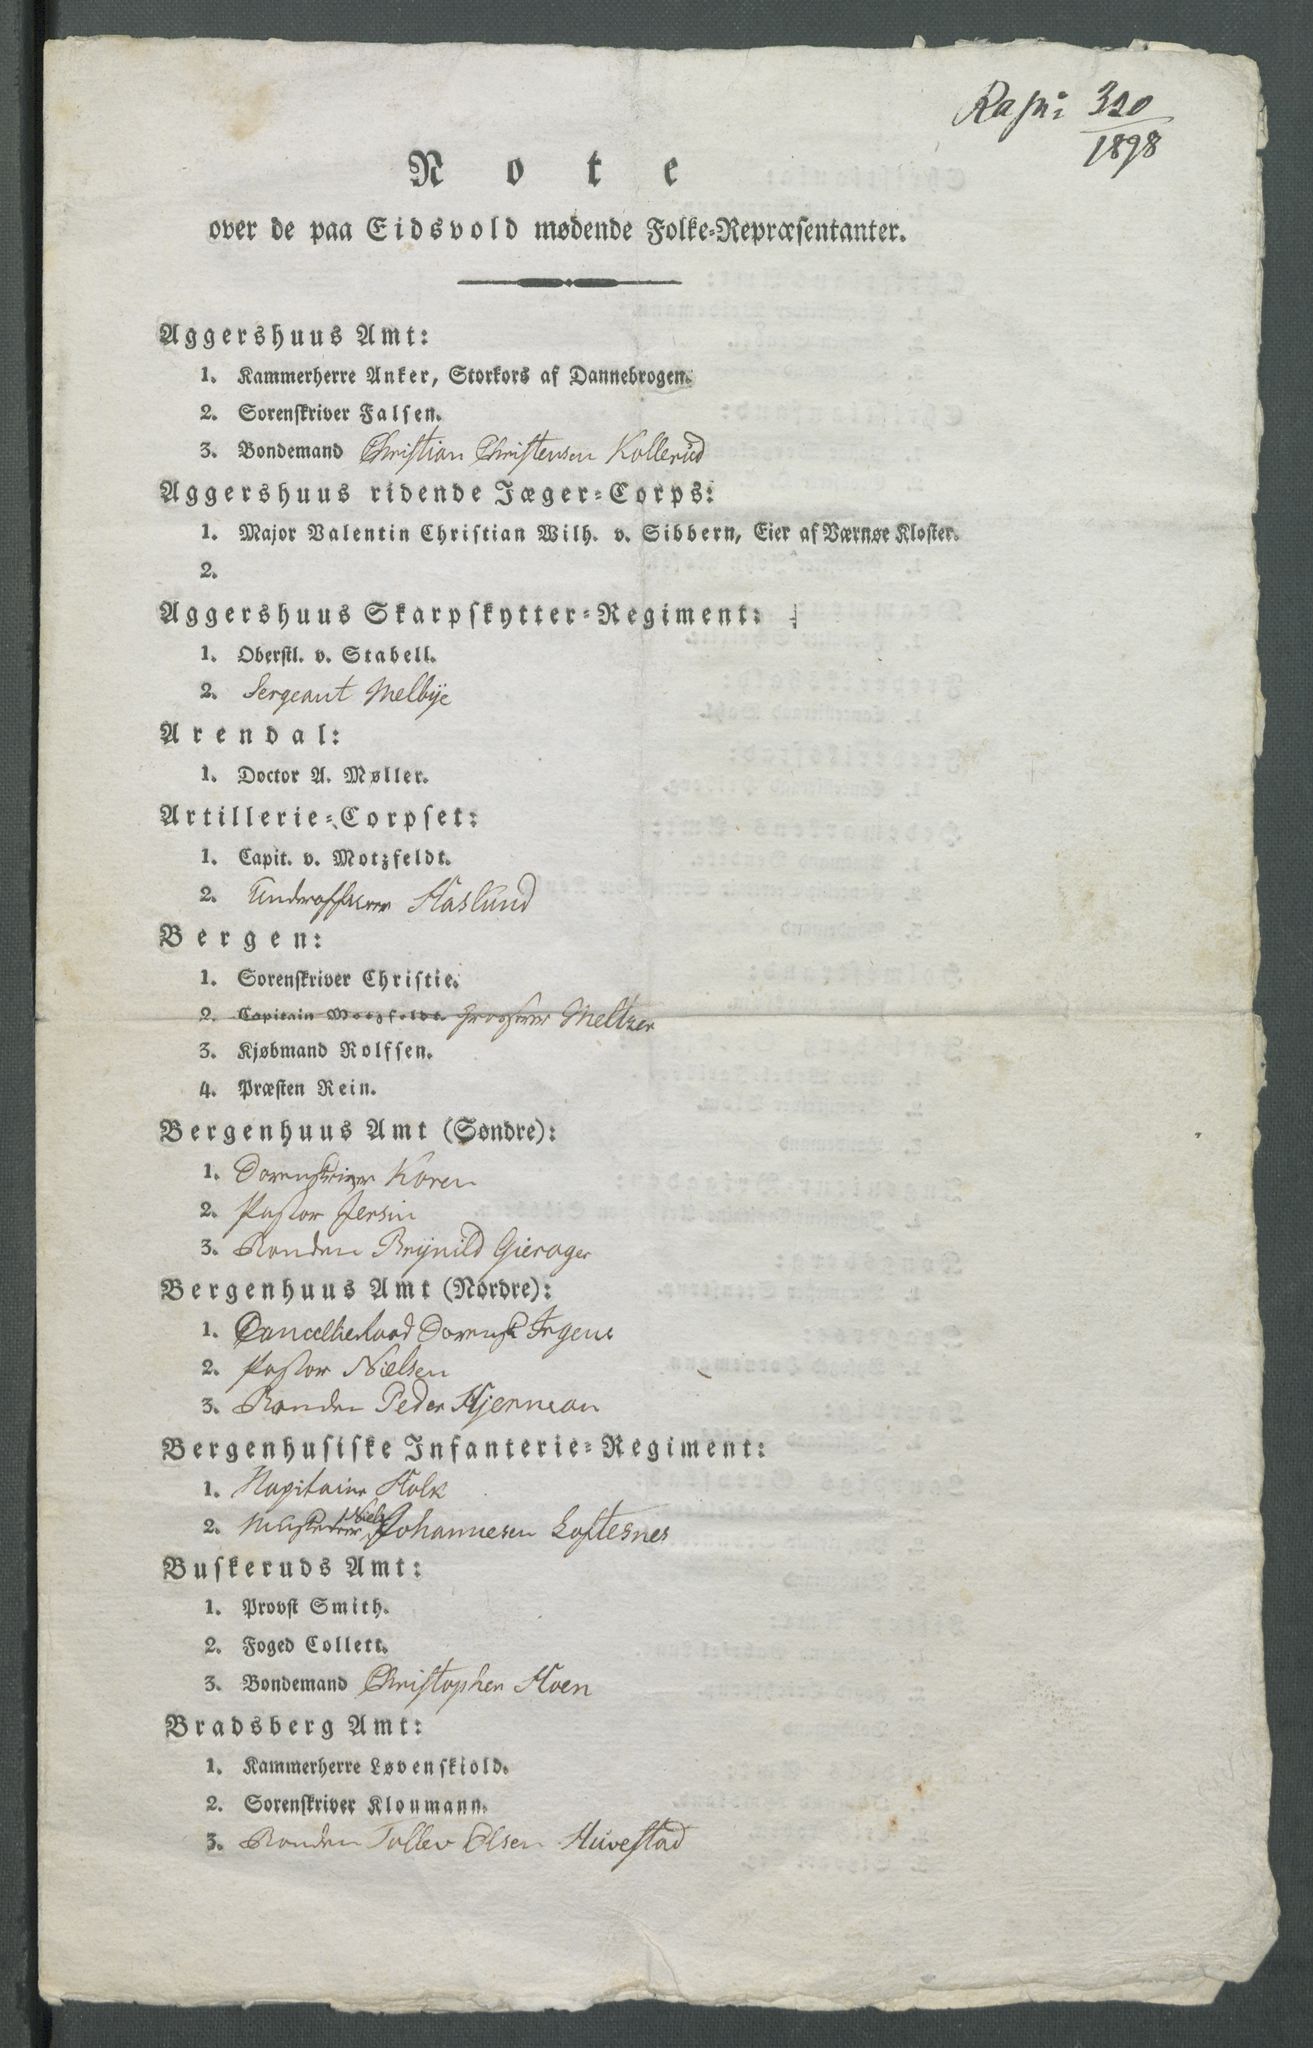 320
1898
Note
over de paa Eidsvold mødende Folke-Repræsentanter.
Aggershuus Amt:
1. Kammerherre Anker, Storkors af Dannebrogen.
2. Sorenskriver Falsen.
3. Bondemand Christian Christensen Kollerud
Aggershuus ridende Jæger-Corps:
1. Major Valentin Christian Wilh. v. Sibbern, Eier af Værnøe Kloster.
2.
Aggershuus Skarpskytter-Regiment:
1. Oberstl. v. Stabell.
2. Sergeant Melbÿe
Arendal:
1. Doctor A. Møller.
Artillerie-Corpset:
1. Capit. v. Motzfeldt.
2. Underofficeer Haslund
Bergen:
1. Sorenskriver Christie.
2. Capitain Motzfeldt. Grosserer Meltzer
3. Kjøbmand Rolfsen.
4. Præsten Rein.
Bergenhuus Amt (Søndre):
1. Sorenskriver Koren
2. Pastor Jersin
3. Bonden Brÿnild Gierager
Bergenhuus Amt (Nordre):
1. Cancellieraad Sorensk Irgens
2. Pastor Nielsen
3. Bonden Peder Hjerman
Bergenhusiske Infanterie-Regiment:
1. Kapitaine Holk
2. Niels Johannesen Loftesnes
Buskeruds Amt:
1. Provst Smith.
2. Foged Collett.
3. Bondemand Christopher Hoen
Bradsberg Amt:
1. Kammerherre Løvenskiold.
2. Sorenskriver Cloumann.
3. Bonden Tollev Olsen Huvestad